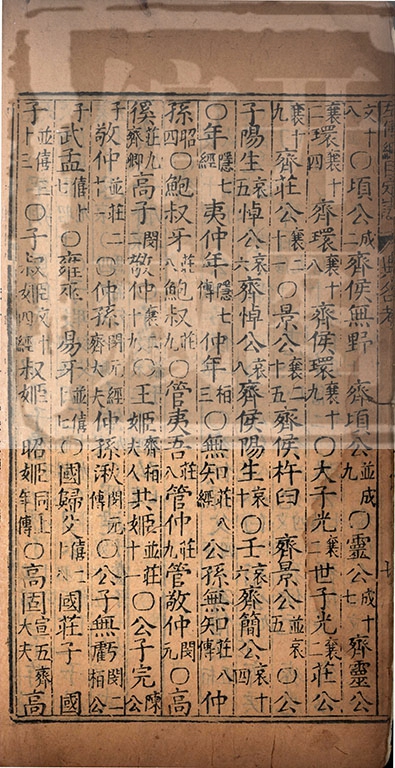 左傳綱目定註
文十八〇頃公成二齊侯無野 齊頃公並成九〇靈公成十七齊靈公
襄二環襄十四齊環襄十八齊侯環襄十九〇大子光襄世子光襄莊公
襄十九齊莊公襄二十一〇景公襄二十五齊侯杵臼 齊景公並哀五〇公
子陽生哀五悼公哀六齊悼公哀八齊侯陽生哀十〇壬哀六齊簡公哀十四
〇年隱七經夷仲年隱七傳仲年桓三〇無知莊八經公孫無知莊八傳仲
孫昭四〇鮑叔牙莊八鮑叔莊九〇管夷吾莊八管仲莊九管敬仲閔元〇高
傒莊九齊卿高子閔二敬仲襄二十九〇王姬齊桓夫人共姬並莊十一〇公子完陳公
子敬仲並莊二十二〇仲孫閔元經齊大夫仲孫湫閔元傳〇公子無虧閔二桓公
子武孟僖十七〇雍巫 易牙十七〇國歸父僖二國莊子 國
子並僖三十三〇子叔姬文十四經叔姬 昭姬同上年傳〇高固宣五齊大夫高